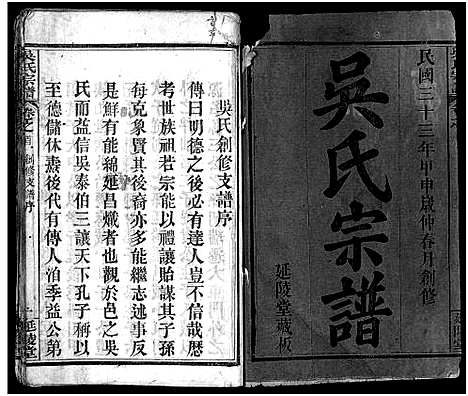 民國三十三年甲申歲仲春月創修
吳氏宗譜
延陵堂藏板
吳氏創修支譜序
傳曰明德之後必有達人豈不信哉歷
考世族祖若宗能以禮讓貽謀其子孫
每克象賢其後裔亦多能繼志述事反
是鮮有能綿延昌熾者也觀於邑之吳
氏而益信吳泰伯三讓天下孔子稱以
至德儲休濟後代有傳人洎季益公第
吳氏宗譜 卷之首 創修支譜序 一 延陵堂